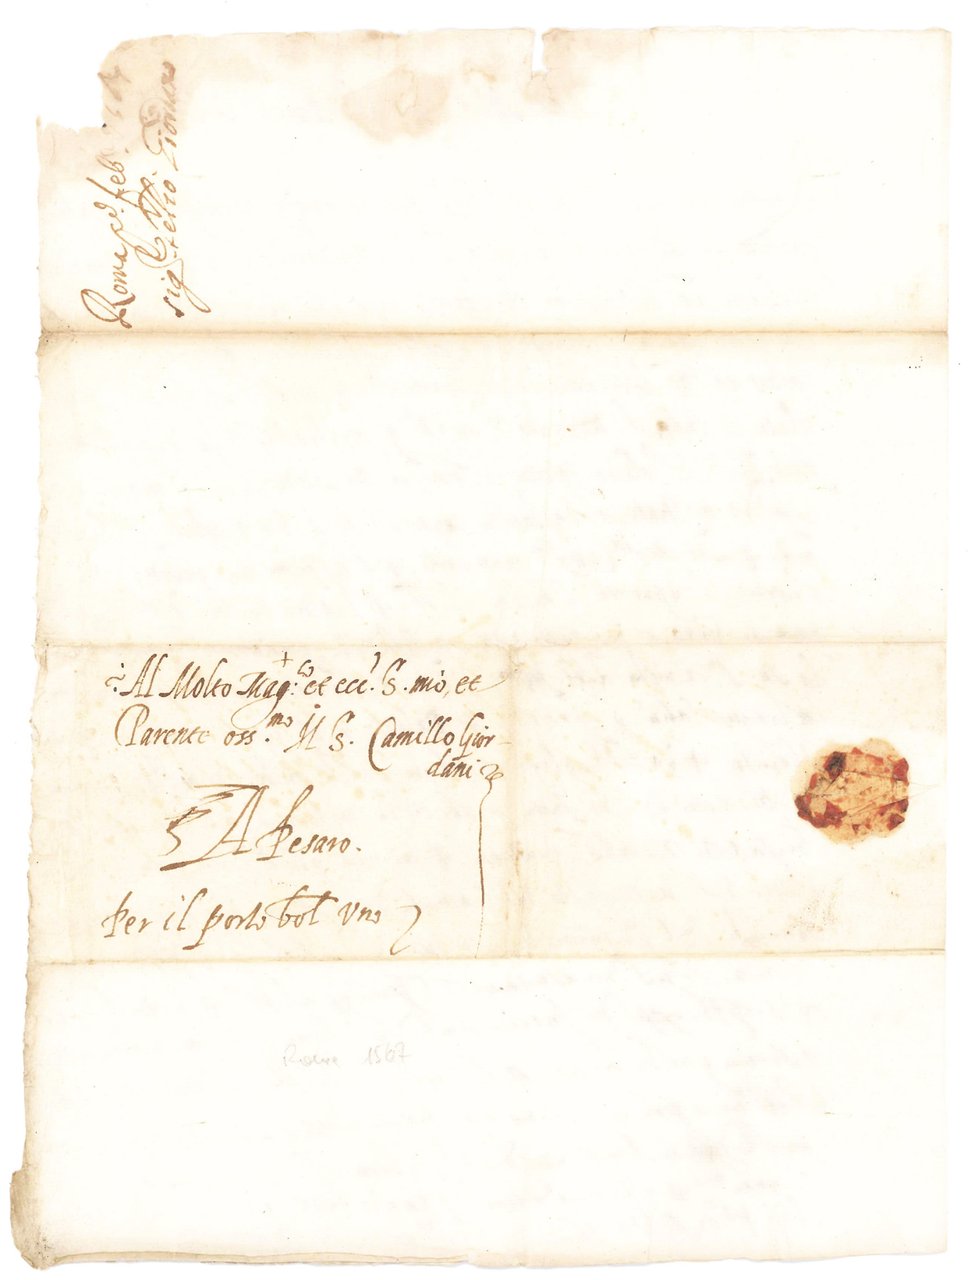 Roma p.º feb.
sig.
Al Molto Mag.co et ecc.te S. mio, et
Parente oss.mo Il S. Camillo Gior-
dani
A Pesaro.
Per il porto bol Uno
Roma 1567